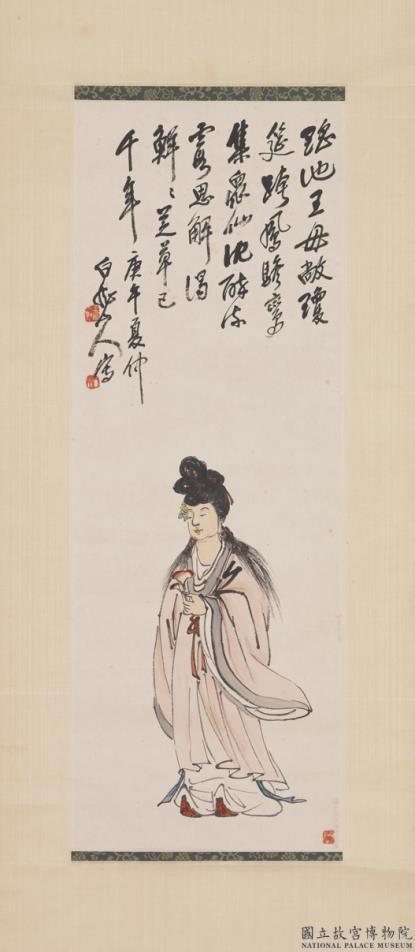 瑤池王母敞瓊
筵跨鳳驂鸞
集眾仙沈醉流
霞思解渴
鮮〻芝草已
千年
庚午夏仲
白龍山人寫
國立故宮博物院
NATIONAL PALACE MUSEUM